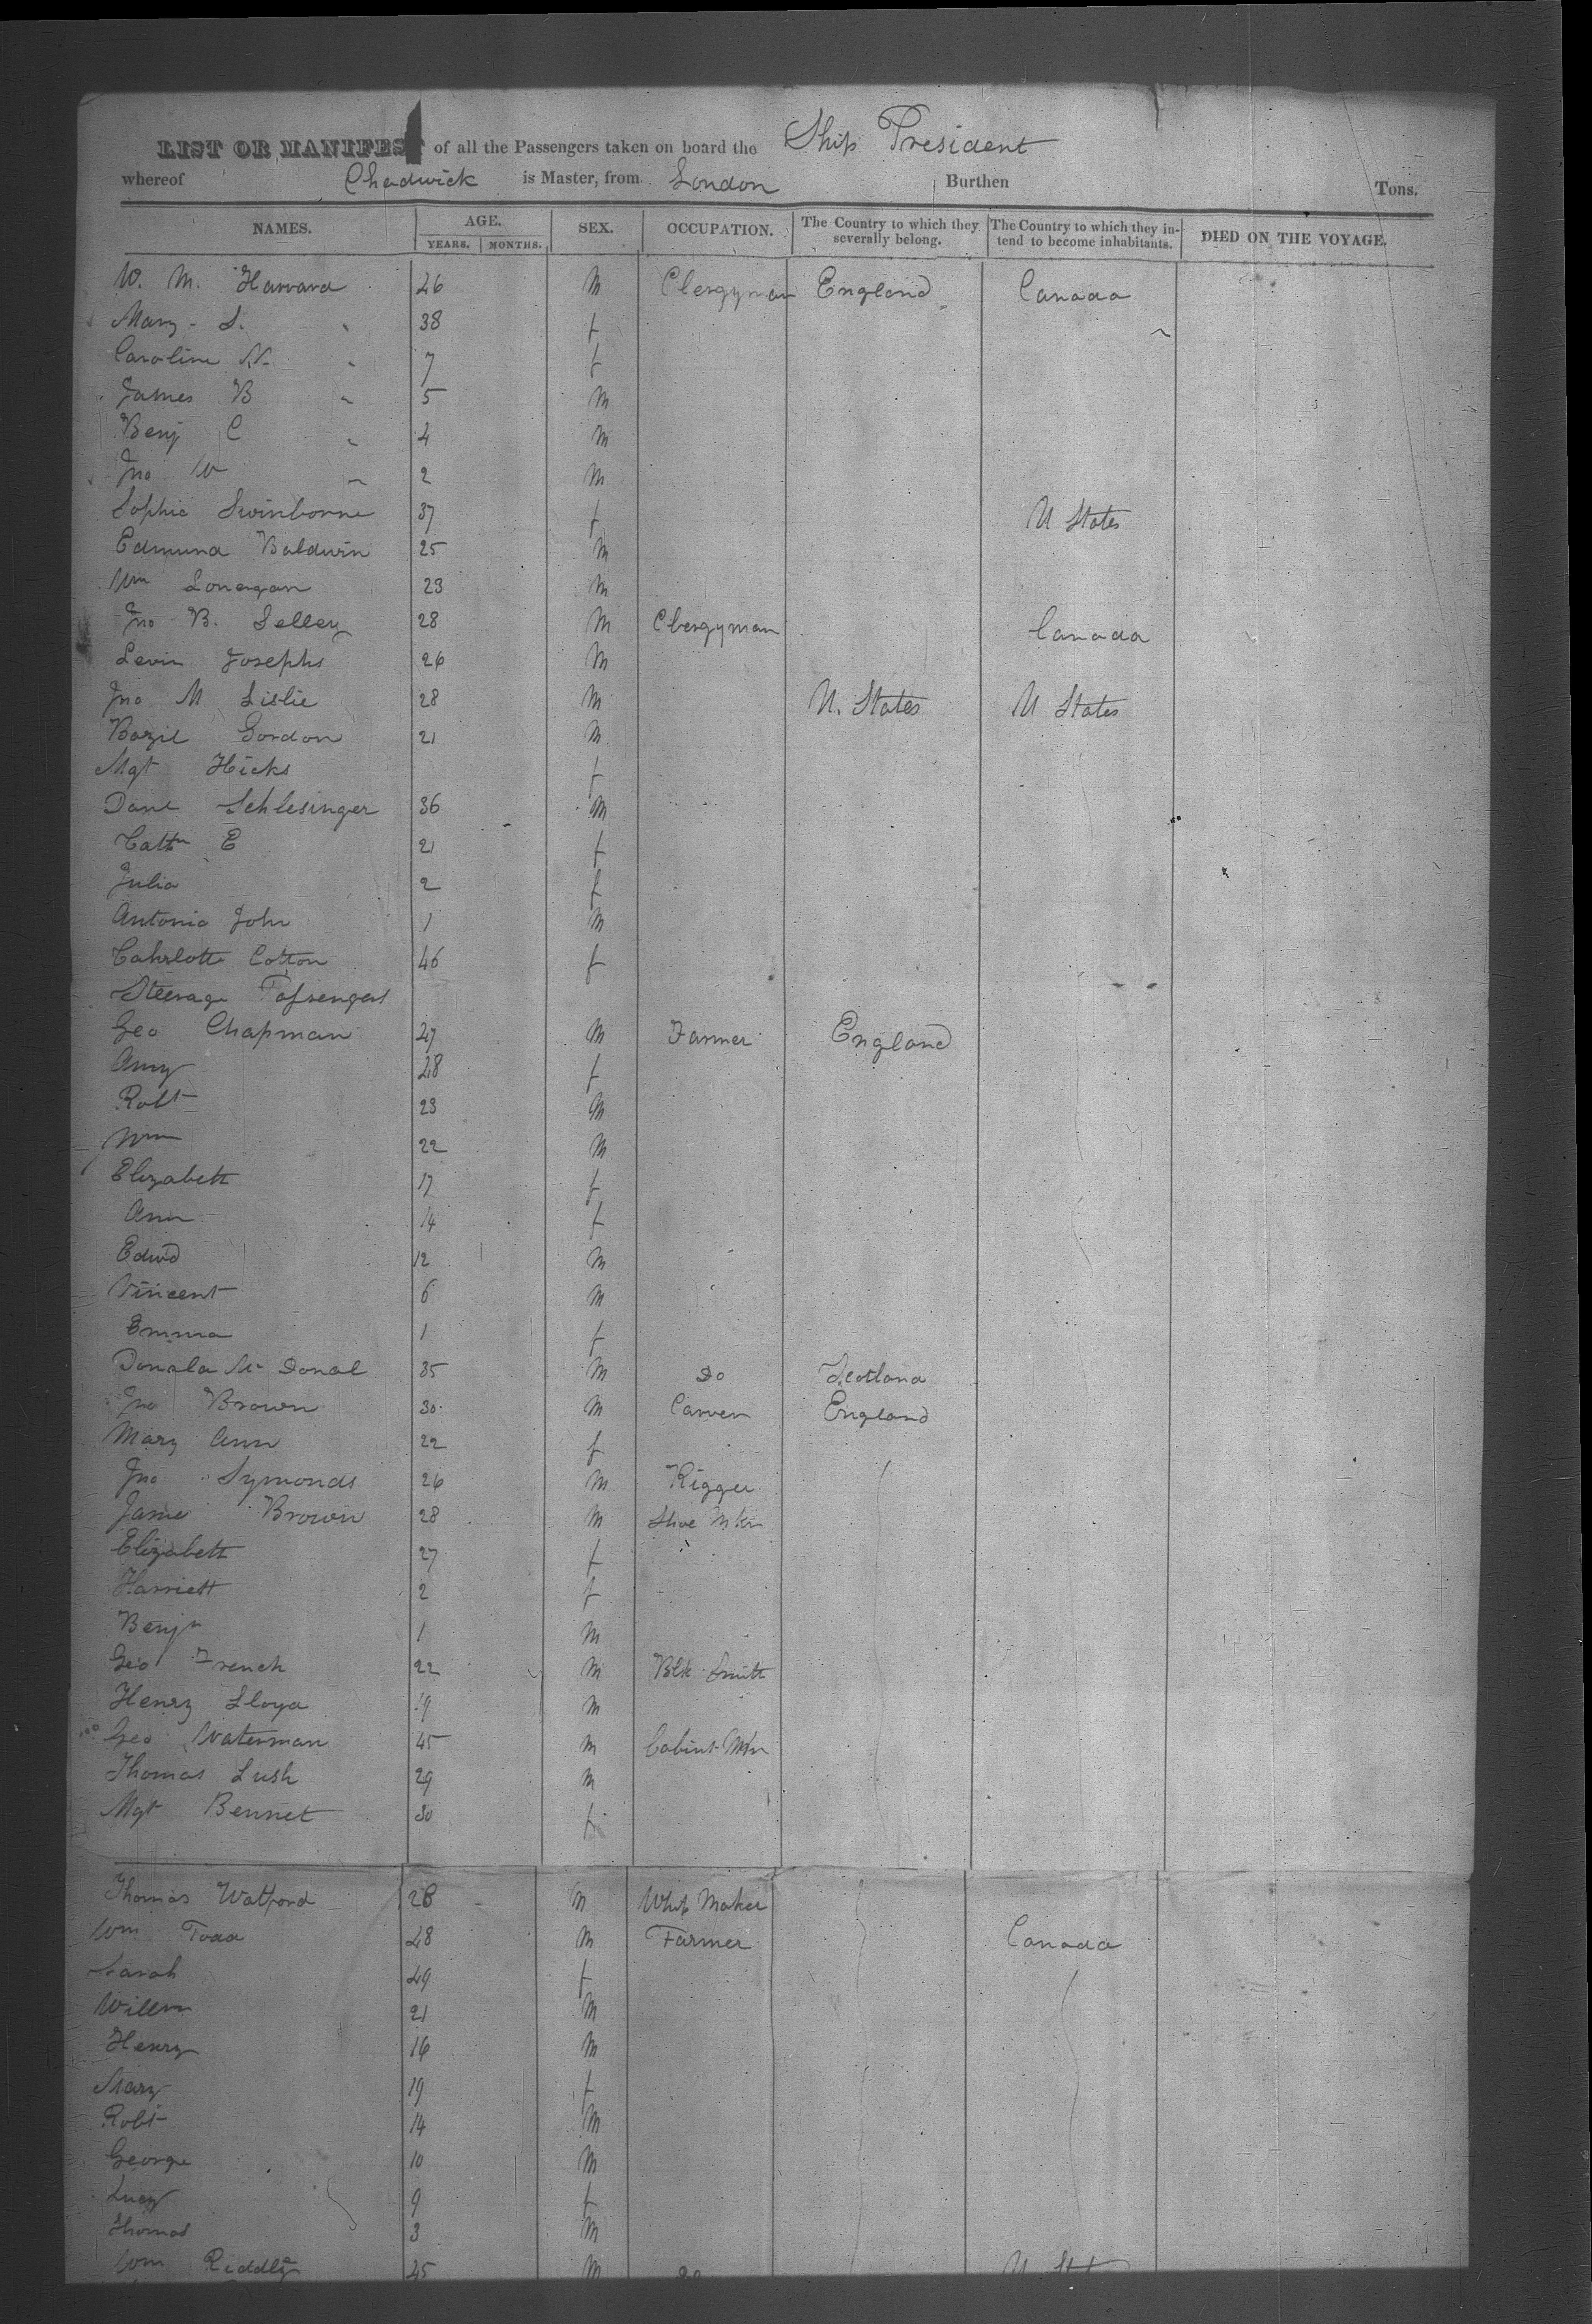 LIST OR MANIFEST of all the Passengers taken on board the Ship President
whereof Chadwick is Master, from London Burthen Tons.
NAMES. AGE. SEX. OCCUPATION. The Country to which they severally belong. The Country to which they intend to become inhabitants. DIED ON THE VOYAGE.
YEARS. MONTHS.
W. M. Harvard 46 M Clergyman England Canada
Mary S. " 38 f
Caroline N. " 7 f
James B " 5 M
Benj C " 4 M
Jno W " 2 M
Sophia Swinborne 37 f U States
Edmund Baldwin 25 M
Wm Lonergan 23 M
Jno B. Selley 28 M Clergyman Canada
Levin Josephs 26 M
Jno M Lislie 28 M U. States U States
Bazil Gordon 21 M
Mgt Hicks f
Danl Schlesinger 36 M
Cathn E 21 f
Julia 2 f
Antonio John 1 M
Cahrlotte Cotton 46 f
Steerage Passengers
Geo Chapman 47 M Farmer England
Amy 48 f
Robt 23 M
Wm 22 M
Elizabeth 17 f
Ann 14 f
Edwd 12 M
Vincent 6 M
Emma 1 f
Donald Mc Donal 35 M Do Scotland
Jno Brown 30 M Carver England
Mary Ann 22 f
Jno Symonds 26 M Rigger
Jame Brown 28 M Shoe Mkr
Elizabeth 27 f
Harriett 2 f
Benjn 1 M
Geo French 22 M Blk Smith
Henry Lloyd 19 M
Geo Waterman 45 M Cabint Mkr
Thomas Lush 29 M
Mgt Bennet 30 f
Thomas Watford 28 M Whip Maker
Wm Todd 48 M Farmer Canada
Sarah 49 f
Willm 21 M
Henry 16 M
Mary 19 f
Robt 14 M
George 10 M
Lucy 9 f
Thomas 3 M
Wm Riddly 45 M